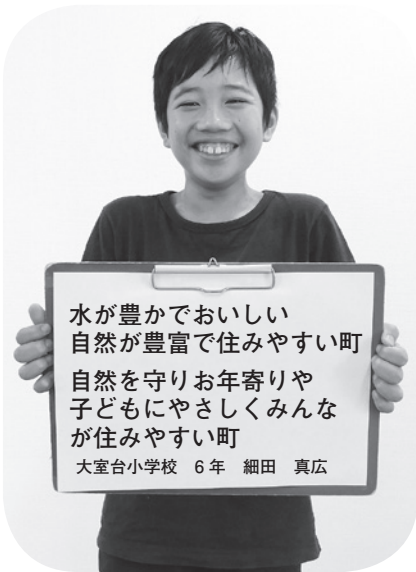 水が豊かでおいしい
自然が豊富で住みやすい町
自然を守りお年寄りや
子どもにやさしくみんな
が住みやすい町
大室台小学校　6年　細田　真広